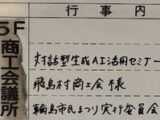 行事内
5F
商工会議所
対話型生成AI活用セミナー
飛島村商工会様
輪島市民まつり実行委員会